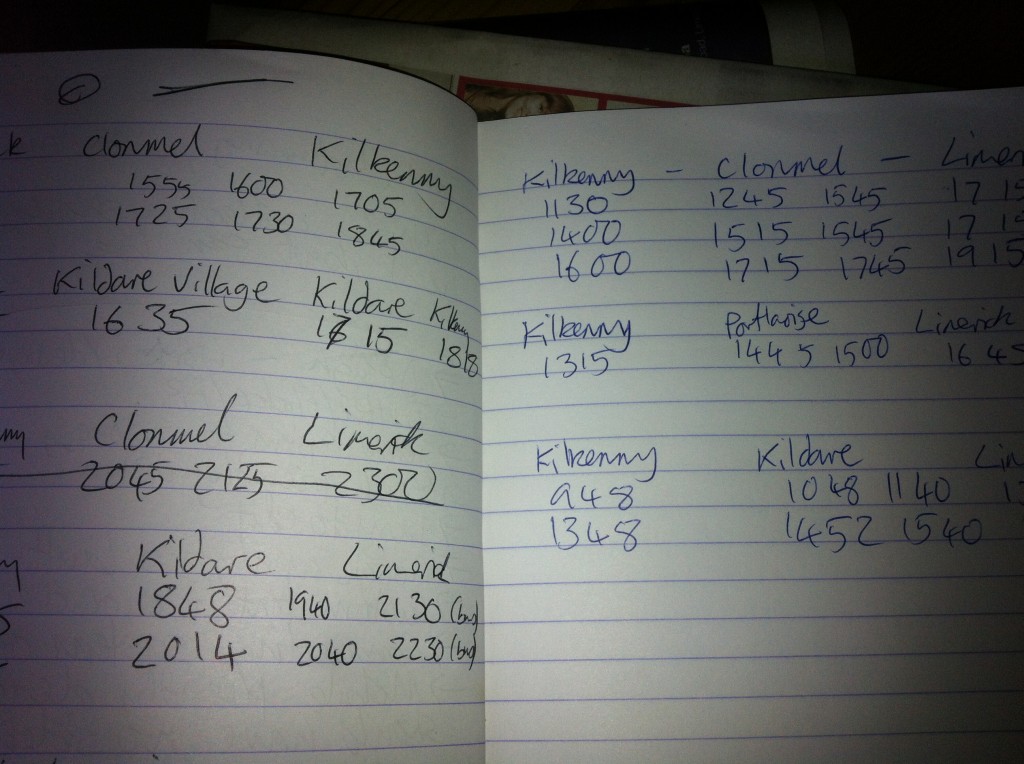 k Clonmel Kilkenny
1555 1600 1705
1725 1730 1845
Kildare Village Kildare Kilkenny
1635 1715 1818
Clonmel Limerick
2045 2125 2300
Kildare Limerick
1848 1940 2130 (bus)
2014 2040 2230 (bus)
Kilkenny - Clonmel - Limer
1130 1245 1545 1715
1400 1515 1545 1715
1600 1715 1745 1915
Kilkenny Portlaoise Limerick
1315 1445 1500 1645
Kilkenny Kildare Lim
948 1048 1140
1348 1452 1540